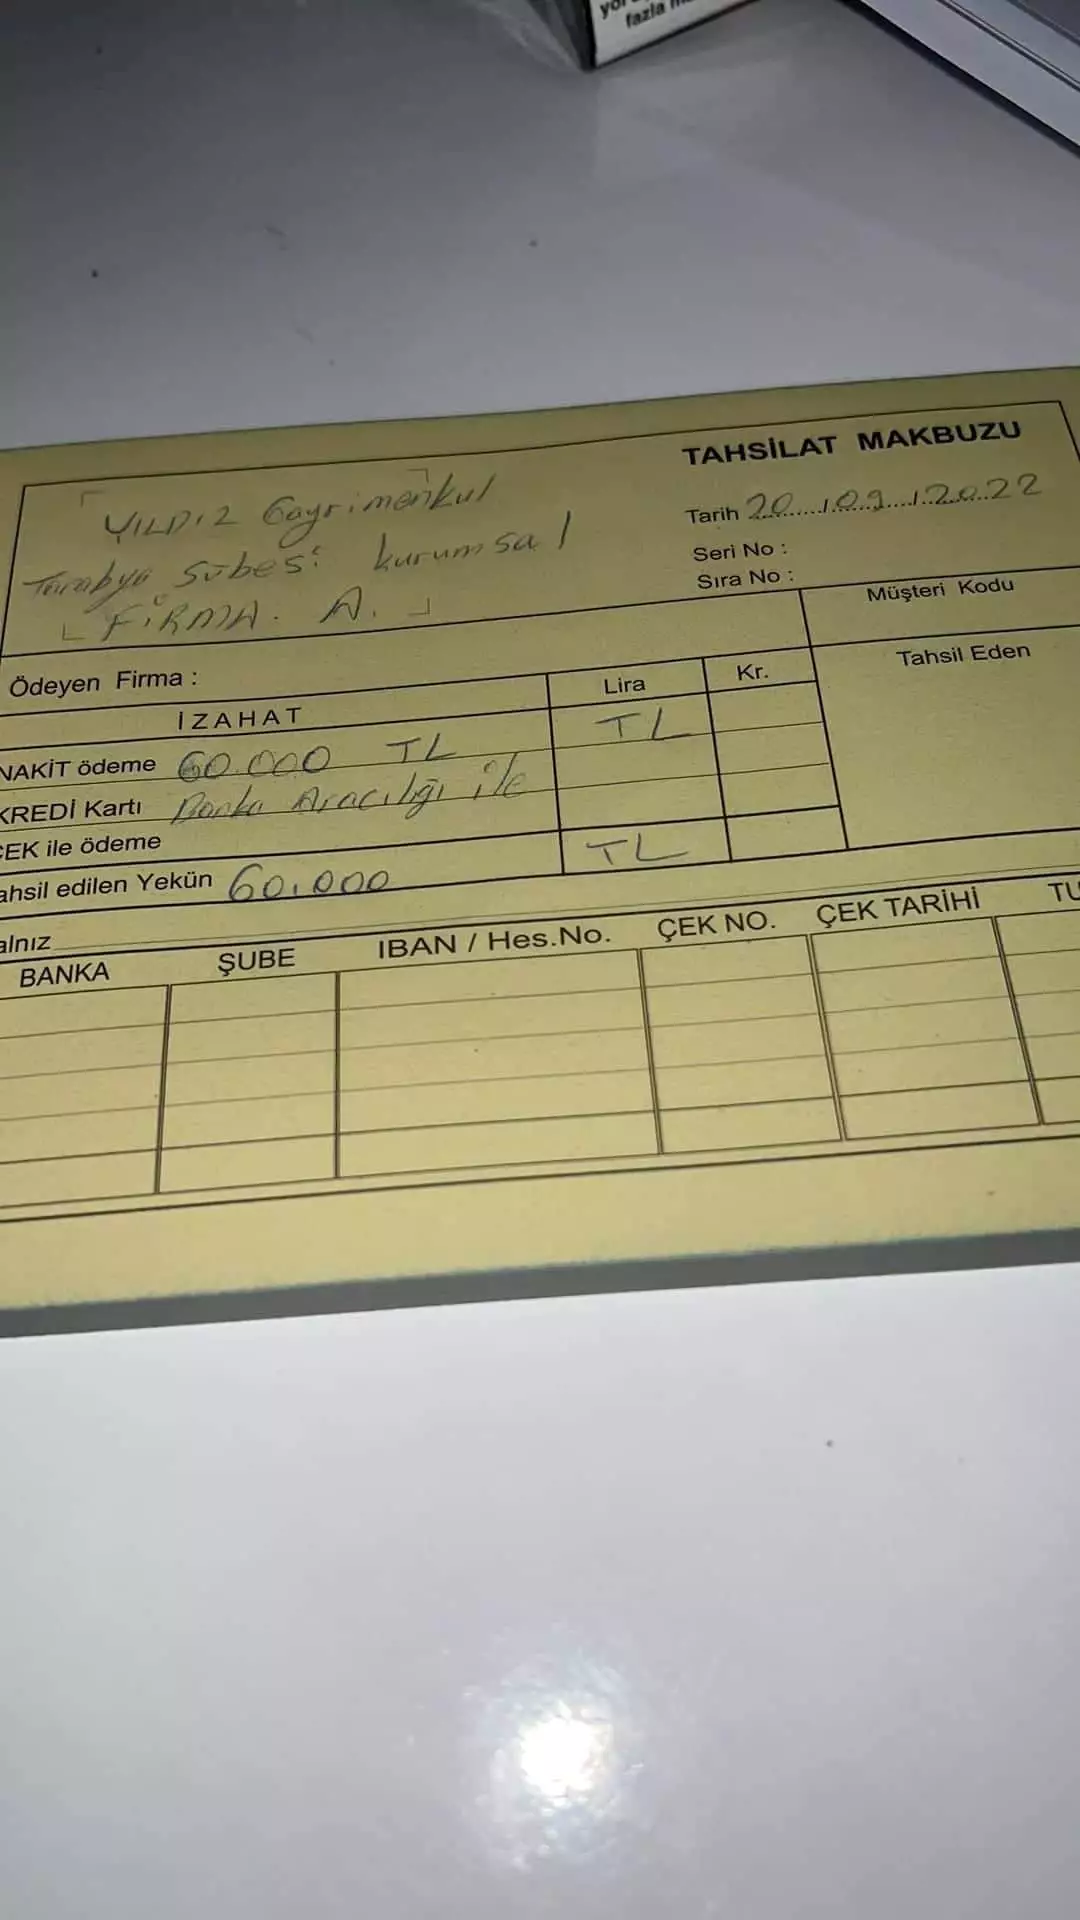 fazla
TAHSİLAT MAKBUZU
YILDIZ Gayrimenkul
Tarabya Şubesi kurumsal
FİRMA. A.
Tarih 20.../09.../2022
Seri No :
Sıra No :
Müşteri Kodu
Ödeyen Firma :
Tahsil Eden
İZAHAT Lira Kr.
NAKİT ödeme 60.000 TL TL
KREDİ Kartı Banka Aracılığı ile
ÇEK ile ödeme
ahsil edilen Yekün 60.000 TL
alnız
BANKA ŞUBE IBAN / Hes.No. ÇEK NO. ÇEK TARİHİ TU